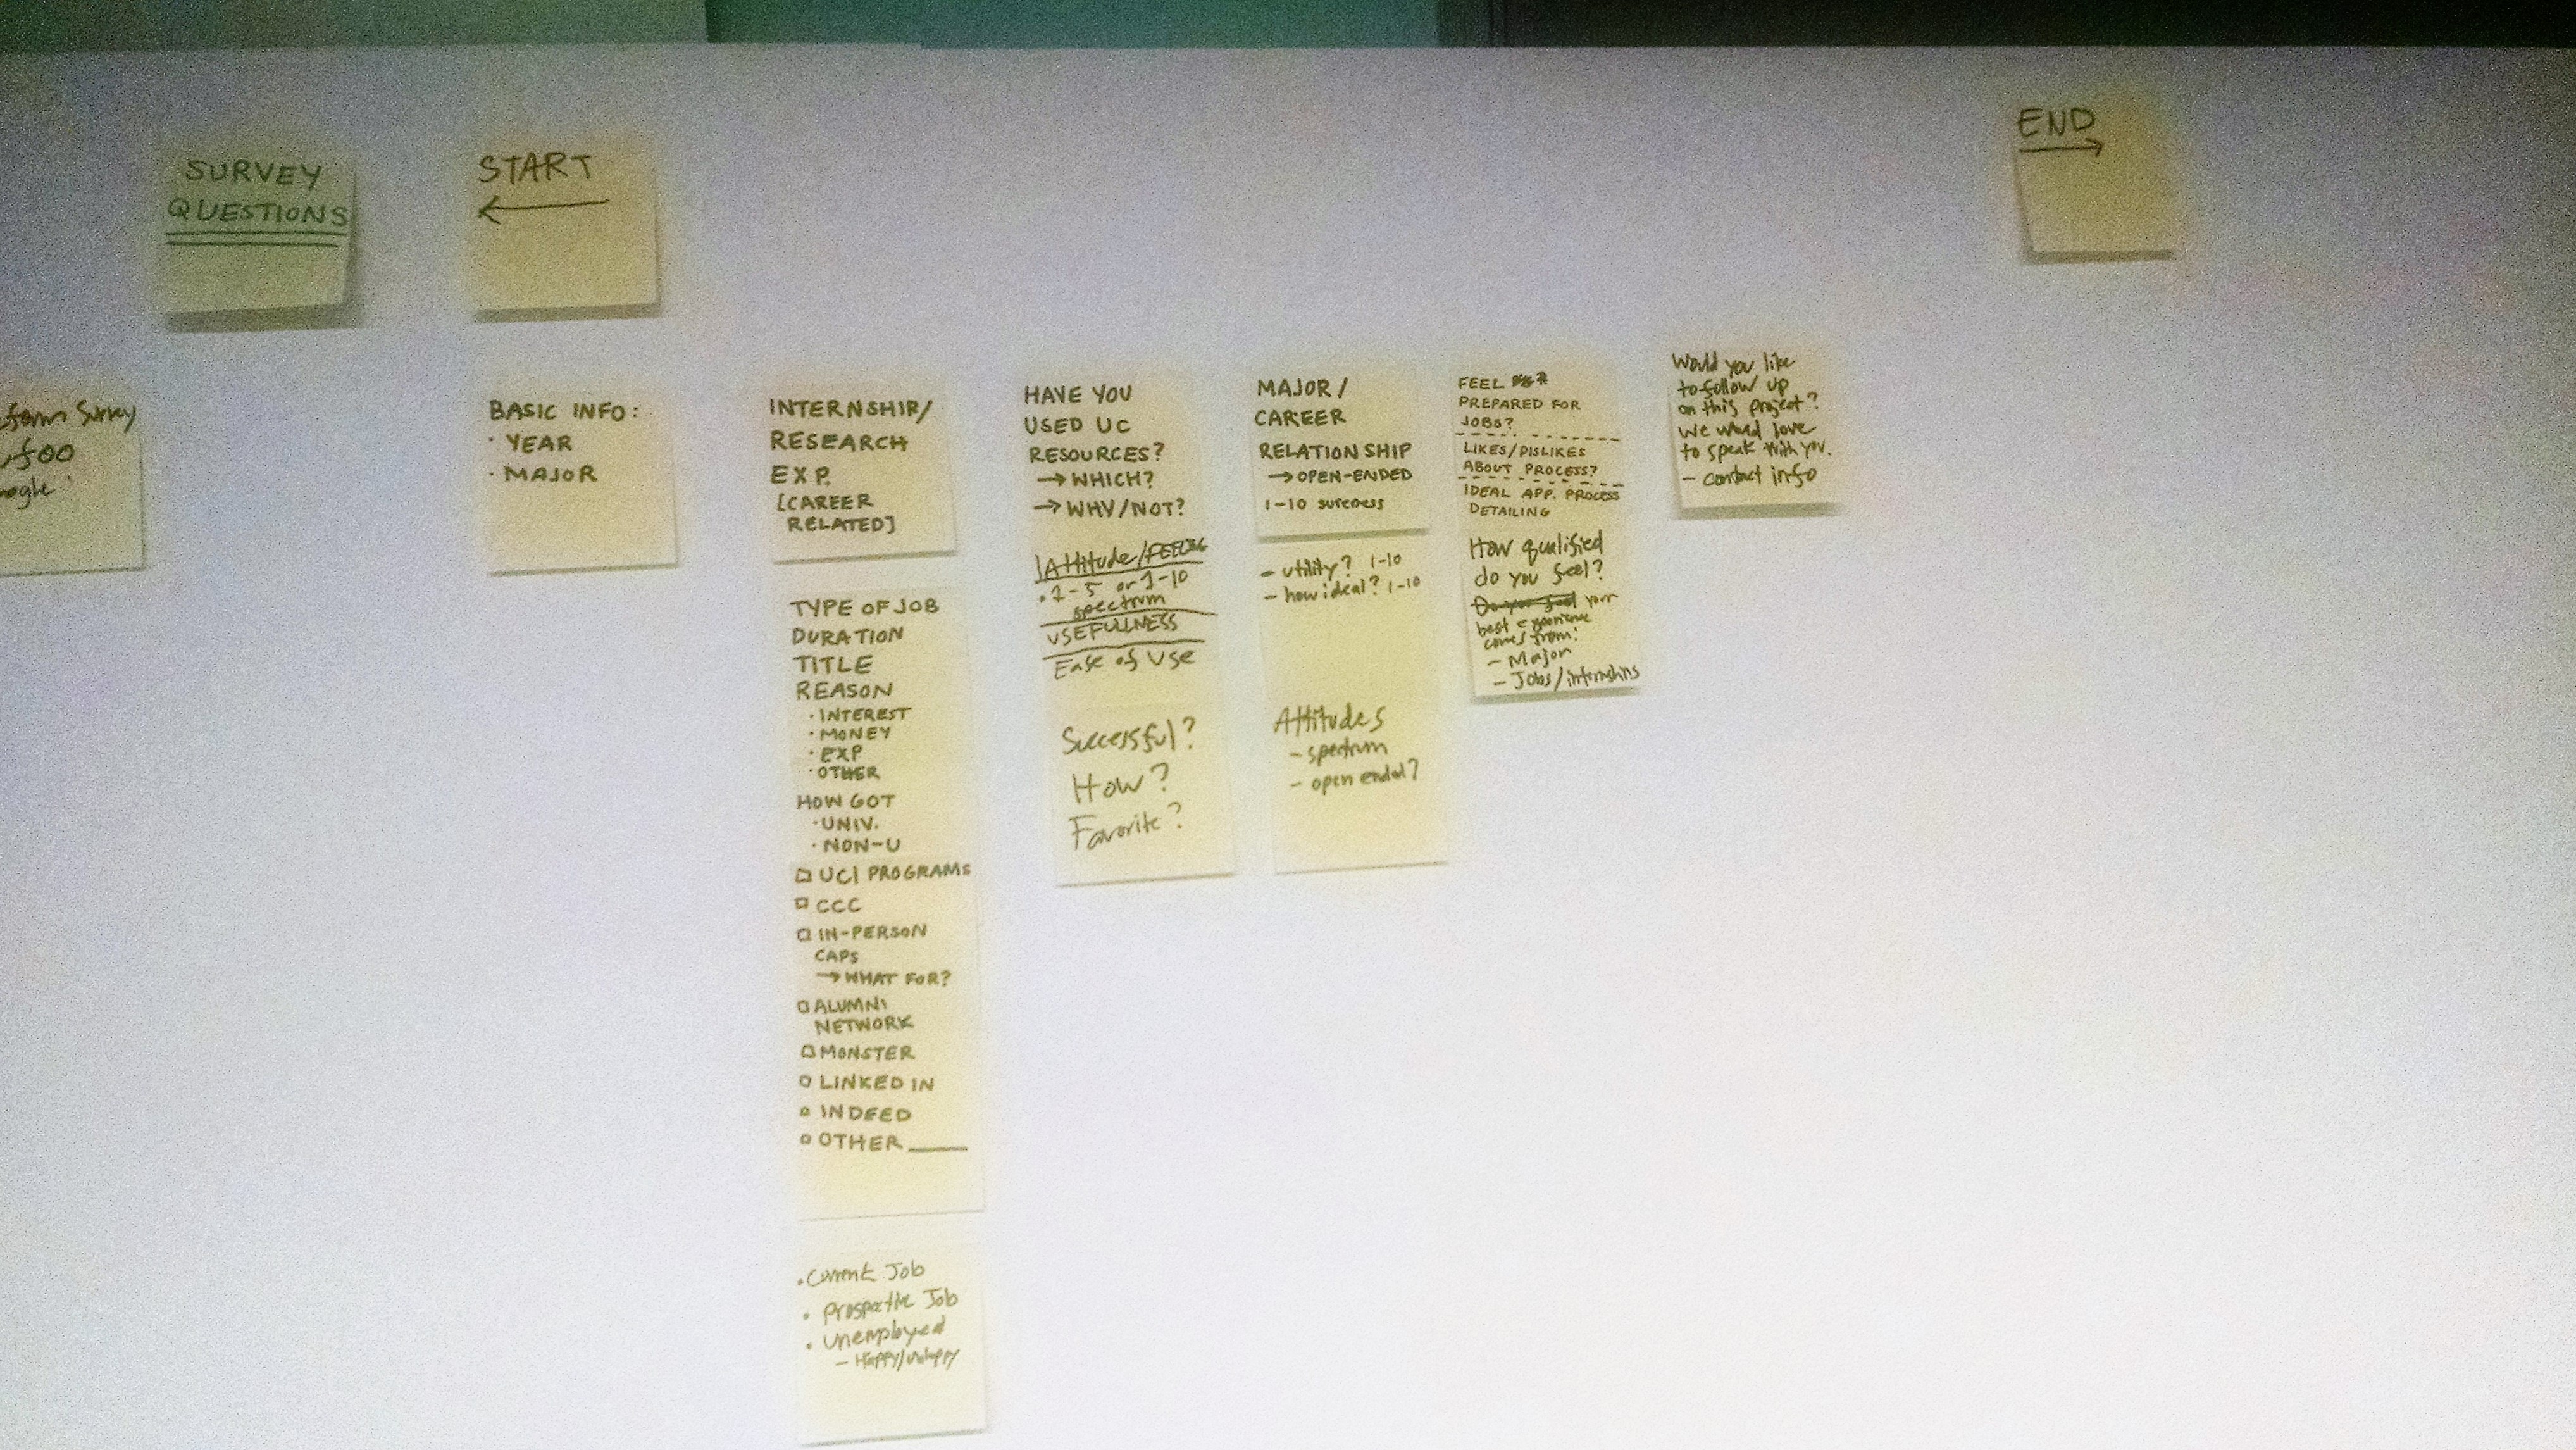 SURVEY
QUESTIONS
START
END
form Survey
foo
BASIC INFO:
· YEAR
· MAJOR
INTERNSHIP/
RESEARCH
EXP.
[CAREER
RELATED]
TYPE OF JOB
DURATION
TITLE
REASON
· INTEREST
· MONEY
· EXP
· OTHER
HOW GOT
· UNIV.
· NON-U
□ UCI PROGRAMS
□ CCC
□ IN-PERSON
CAPS
→ WHAT FOR?
□ ALUMNI
NETWORK
□ MONSTER
□ LINKED IN
□ INDEED
□ OTHER ____
· Current Job
· Prospective Job
· Unemployed
- Happy/unhappy
HAVE YOU
USED UC
RESOURCES?
→ WHICH?
→ WHY/NOT?
Attitude/FEELING
· 1-5 or 1-10
spectrum
USEFULLNESS
Ease of Use
Successful?
How?
Favorite?
MAJOR/
CAREER
RELATIONSHIP
→ OPEN-ENDED
1-10 sureness
- utility? 1-10
- how ideal? 1-10
Attitudes
- spectrum
- open ended?
FEEL
PREPARED FOR
JOBS?
LIKES/DISLIKES
ABOUT PROCESS?
IDEAL APP. PROCESS
DETAILING
How qualified
do you feel?
Do you feel your
best experience
comes from:
- Major
- Jobs/internships
Would you like
to follow up
on this project?
we would love
to speak with you.
- contact info